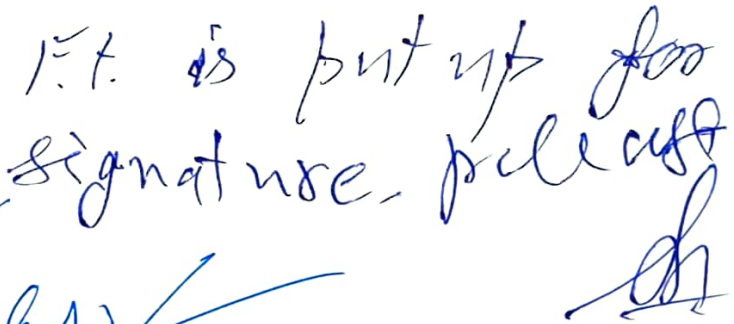 F.t. is put up for
signature, please